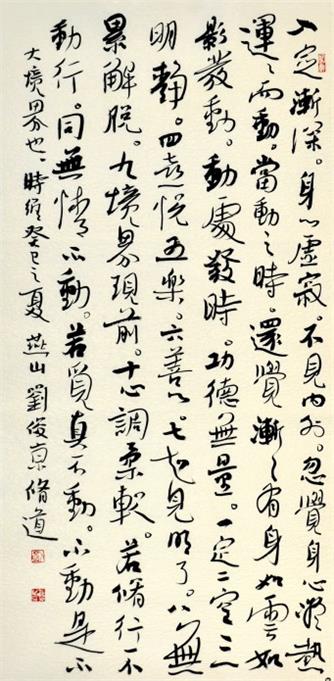 入定漸深。身心虛寂。不見內外。忽覺身心凝熱。
運〻而動。當動之時。還覺漸〻有身如雲如
影發動。動處發時。功德無量。一定二空三
明靜。四喜悅五樂。六善心。七知見明了。八無
累解脫。九境界現前。十心調柔軟。若脩行一不
動行。同無情不動。若覓真不動。不動是不
大境界也。時維癸巳之夏 燕山劉俊京脩道